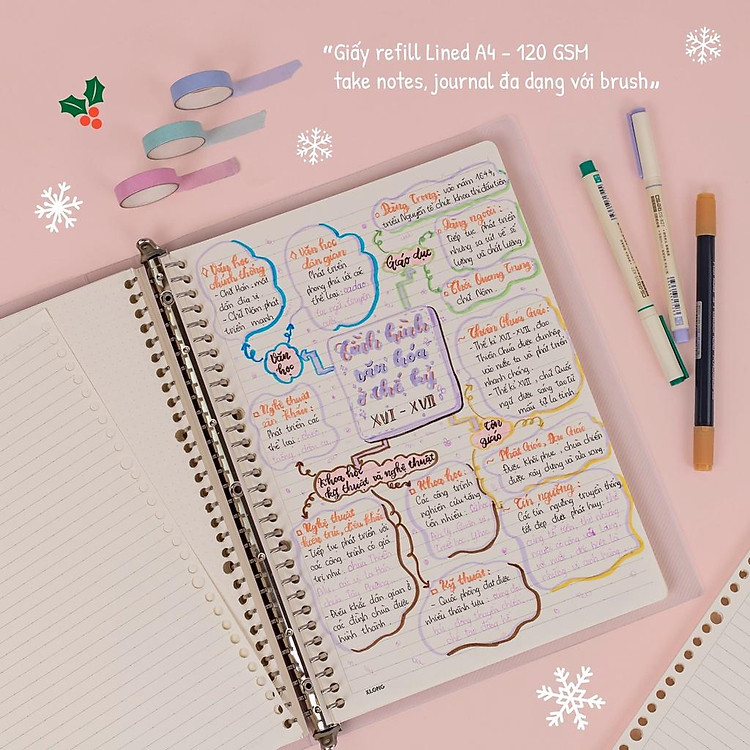 "Giấy refill Lined A4 - 120 GSM
take notes, journal đa dạng với brush"
Tình hình
văn hóa
ở thế kỷ
XVI - XVII
Giáo dục
Đàng Trong: vào năm 1644,
triều Nguyễn tổ chức khoa thi đầu tiên
Đàng ngoài:
Tiếp tục phát triển
nhưng sa sút về số
lượng và chất lượng.
Thời Quang Trung:
chữ Nôm
Văn
học
Văn học
chính thống
- Chữ Hán: mất
dần địa vị
- Chữ Nôm phát
triển mạnh
Văn học
dân gian
Phát triển
phong phú với các
thể loại: ca dao,
Tôn
giáo
~ Thiên Chúa Giáo:
- Thế kỉ XVI - XVII, đạo
Thiên Chúa được du nhập
vào nước ta và phát triển
nhanh chóng.
- Thế kỉ XVII, chữ Quốc
ngữ được sáng tạo từ
mẫu tự la tinh
~ Phật Giáo, Đạo Giáo
Được khôi phục, chùa chiền
được xây dựng và sửa sang.
~ Tín ngưỡng:
Các tín ngưỡng truyền thống
tốt đẹp được phát huy:
Nghệ thuật
sân khấu:
Phát triển các
thể loại:
Khoa học
kỹ thuật và nghệ thuật
Nghệ thuật
kiến trúc, điêu khắc
- Tiếp tục phát triển với
các công trình có giá
trị như: chùa Thiên
Mụ,
- Điêu khắc dân gian ở
các đình chùa được
hình thành
Khoa học:
Các công trình
nghiên cứu tăng
lên nhiều:
Kỹ thuật:
- Quốc phòng đạt được
nhiều thành tựu:
KLONG